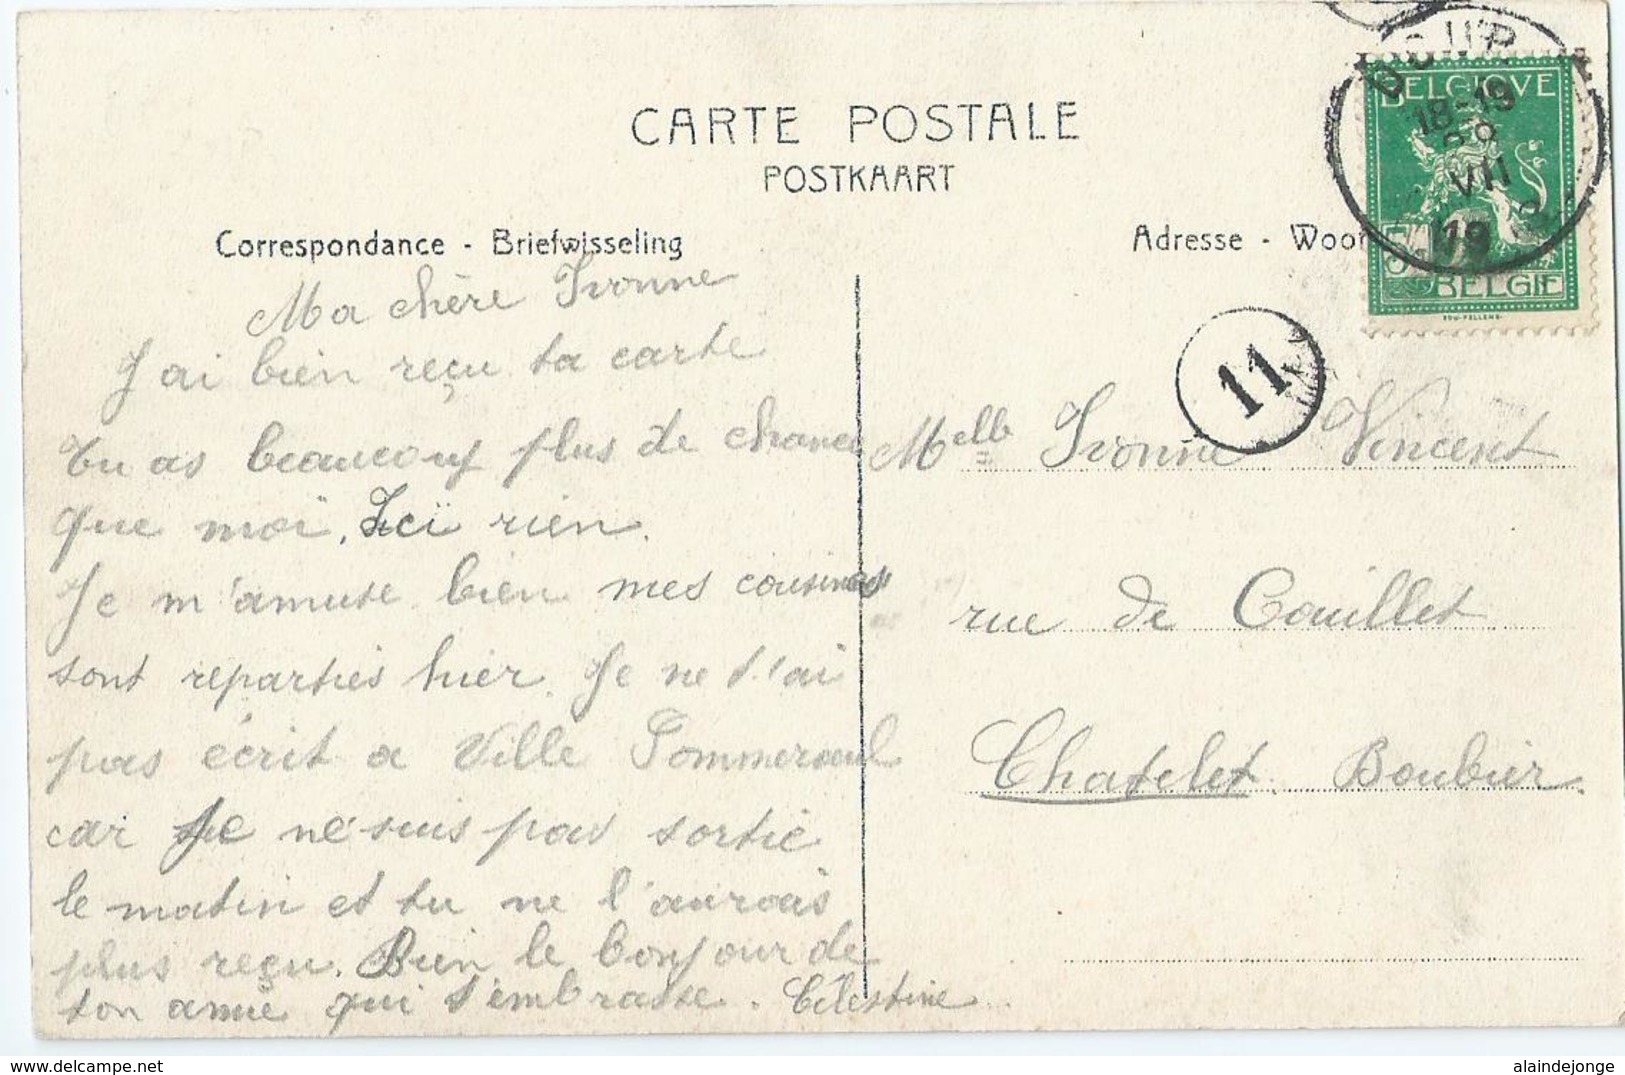 CARTE POSTALE
POSTKAART
Correspondance - Briefwisseling
Adresse - Woon
DOUR
18-19
VII
19
BELGIQUE
5
BELGIË
11
Ma chère Ivonne
J'ai bien reçu ta carte
tu as beaucoup plus de chance
que moi, Ici rien.
Je m'amuse bien mes cousines
sont reparties hier. Je ne t'ai
pas écrit a Ville Pommeroeul
car Je ne suis pas sortie
le matin et tu ne l'aurais
plus reçu. Bien le bonjour de
ton amie qui t'embrasse. Célestine
Melle Ivonne Vincent
rue de Couillet
Chatelet Boubier.
alaindejonge